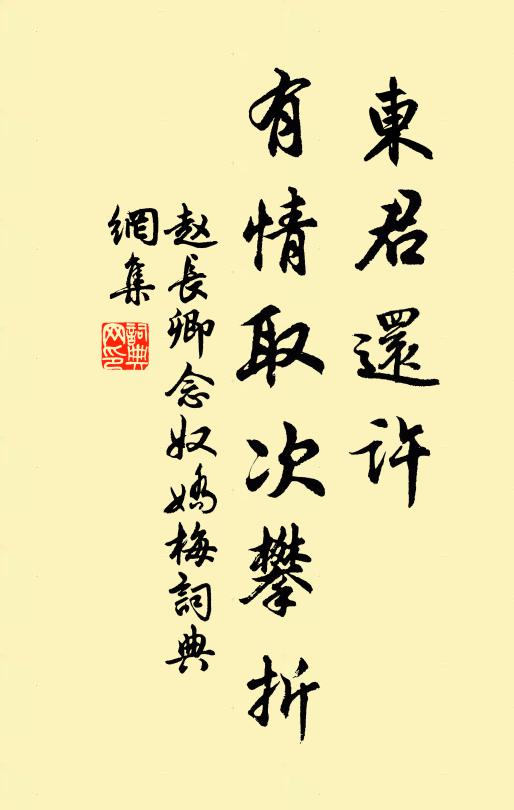 東君還許
有情取次攀折
赵長卿念奴嬌梅詞典
網集
詞典
网印